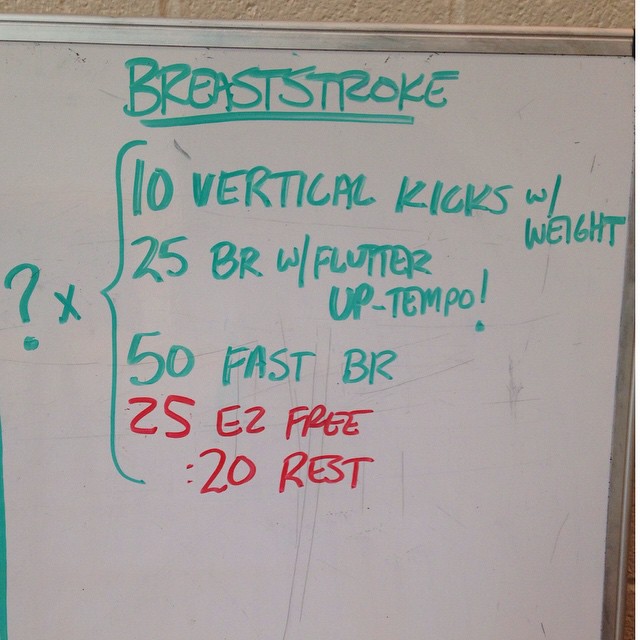 BREASTSTROKE
10 VERTICAL KICKS w/
WEIGHT
25 BR W/FLUTTER
UP-TEMPO!
? x
50 FAST BR
25 EZ FREE
:20 REST